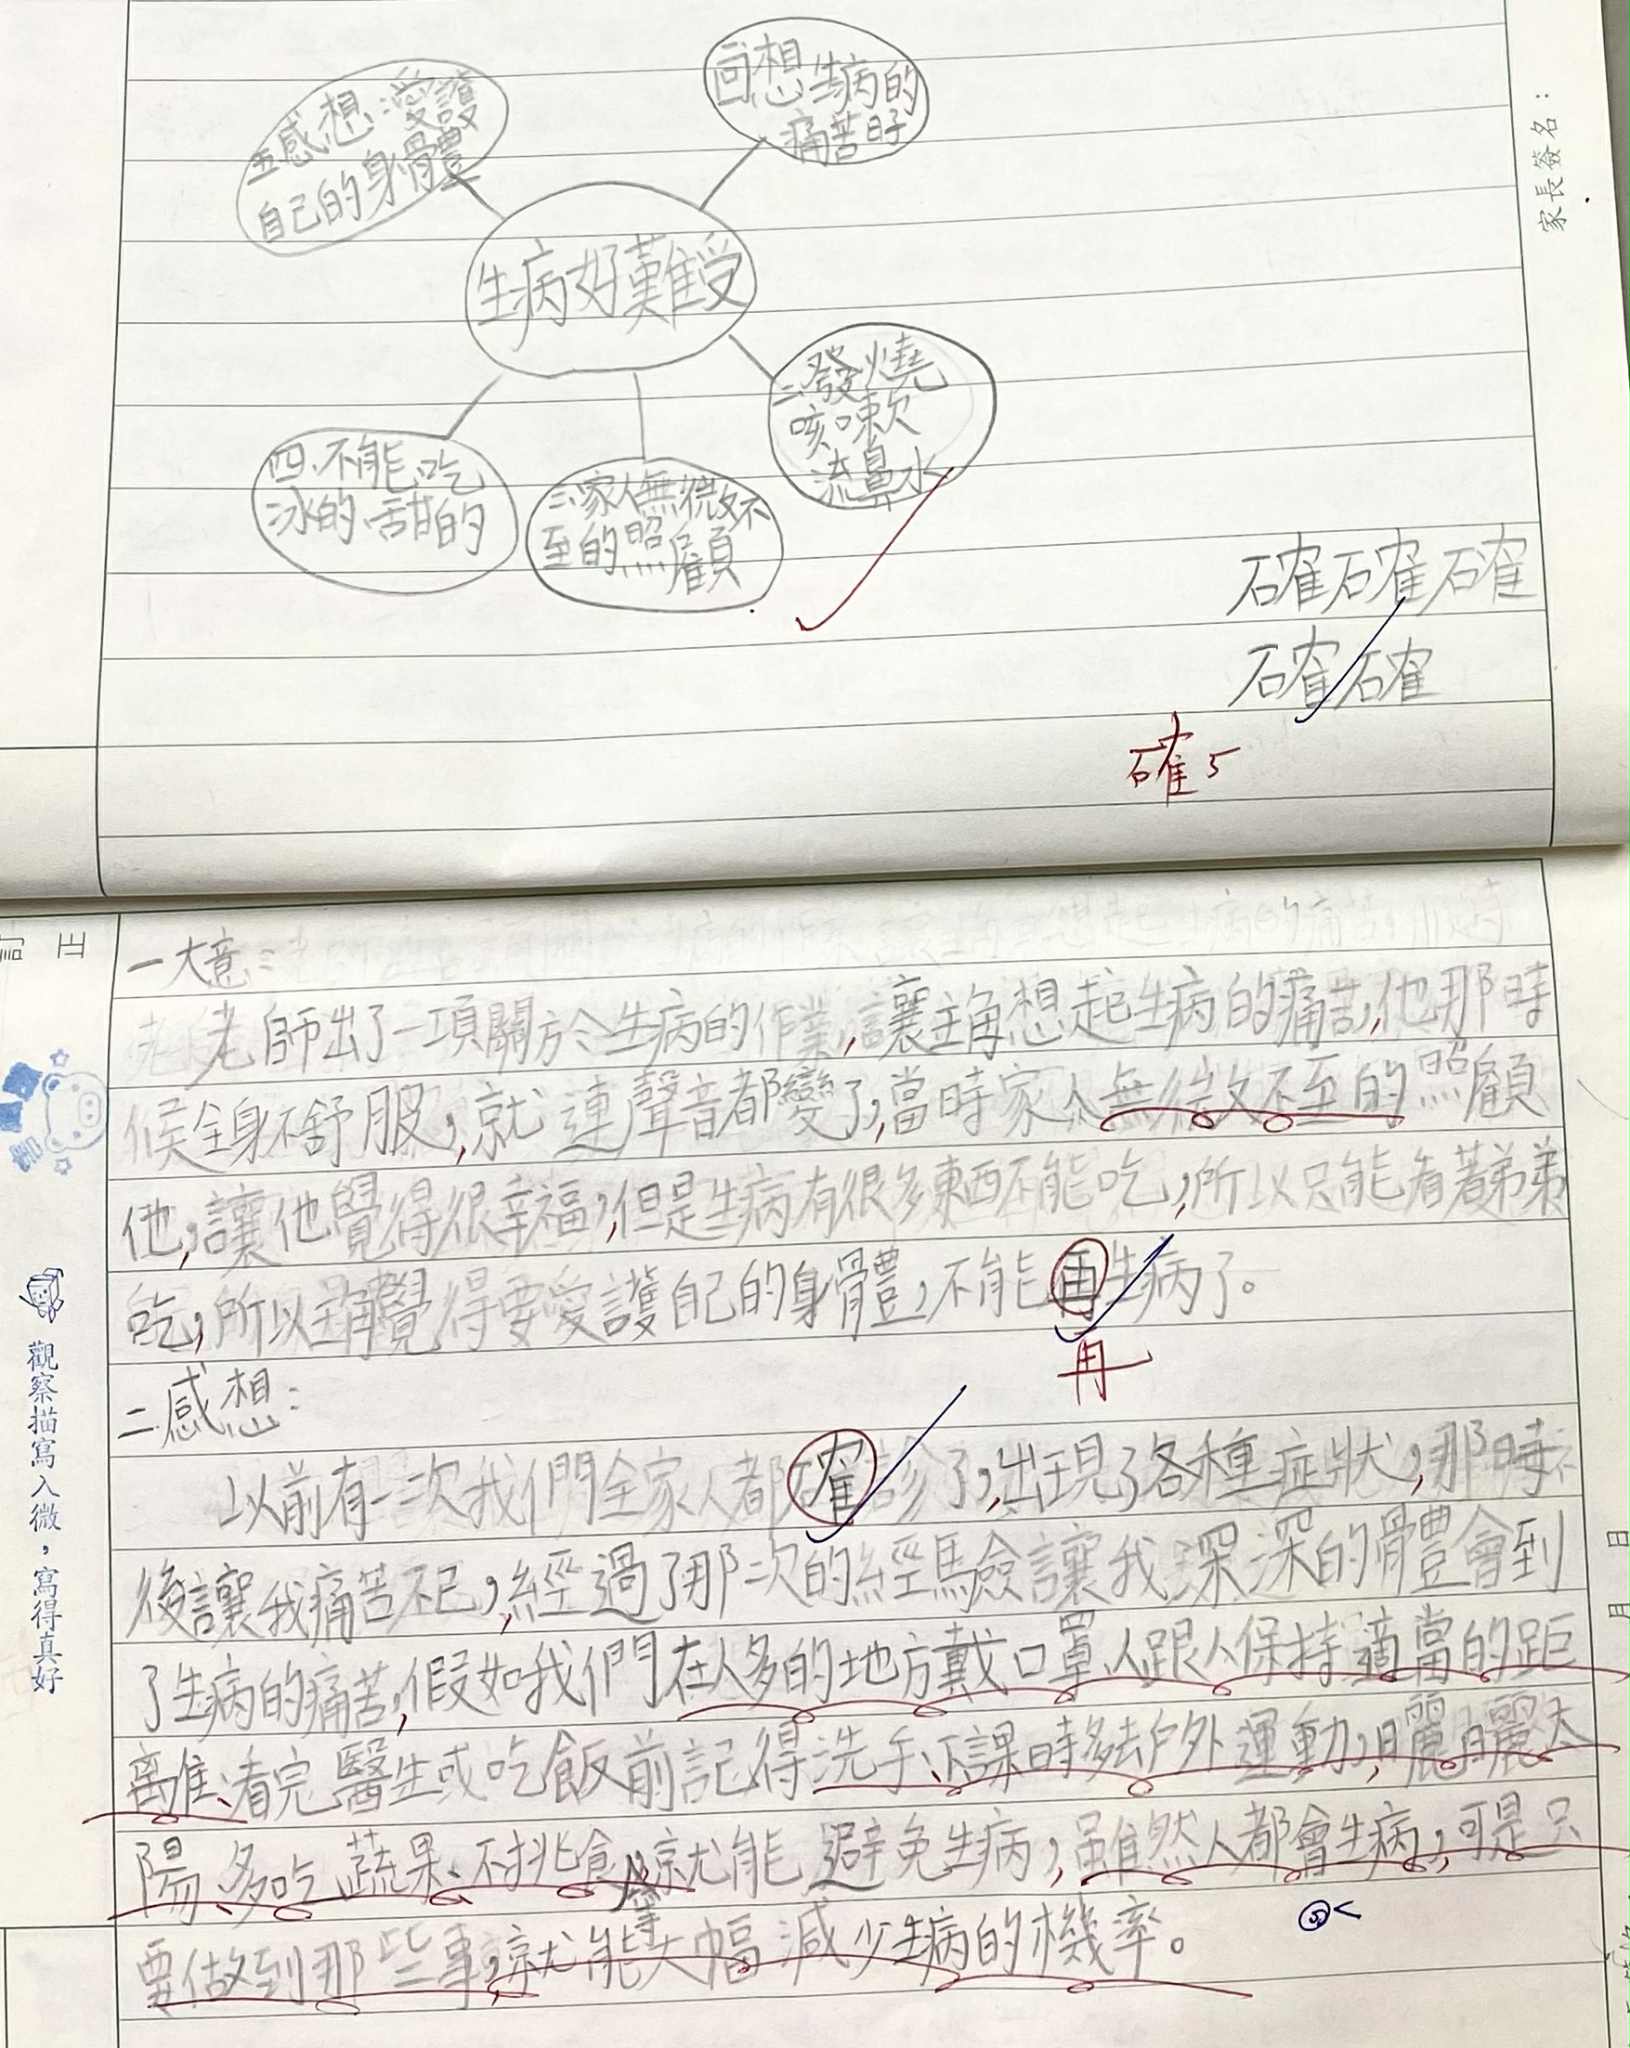 五感想:愛護
自己的身體
回想生病的
痛苦日子
生病好難受
二、發燒
咳嗽
流鼻水
四、不能吃
冰的、甜的
三、家人無微不
至的照顧
家長簽名：
確確確
確確
確5
訂正
一大意:
老師出了一項關於生病的作業,讓主角想起生病的痛苦,他那時
候全身不舒服,就連聲音都變了,當時家人無微不至的照顧
他,讓他覺得很幸福,但是生病有很多東西不能吃,所以只能看著弟弟
吃,所以主角覺得要愛護自己的身體,不能再生病了。
再
二感想:
以前有一次我們全家人都確診了,出現了各種症狀,那時
後讓我痛苦不已,經過了那次的經驗讓我深深的體會到
了生病的痛苦,假如我們在人多的地方戴口罩、人跟人保持適當的距
離、看完醫生或吃飯前記得洗手、下課時多去戶外運動,曬曬太
陽、多吃蔬果、不挑食等,就能避免生病,雖然人都會生病,可是只
要做到那些事,就能大幅減少生病的機率。
觀察描寫入微，寫得真好
月 日